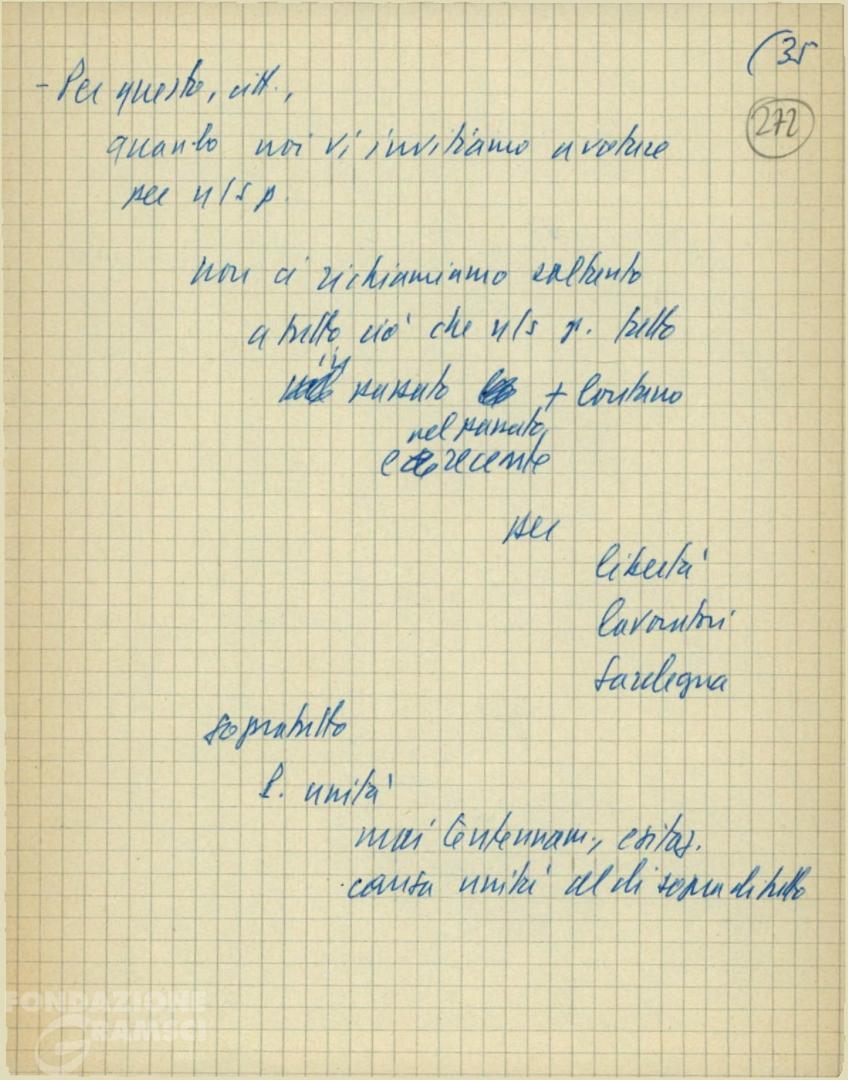 (35
272
- Per questo, citt.,
quando noi vi invitiamo a votare
per n/s p.
non ci richiamiamo soltanto
a tutto ciò che n/s p. fatto
in passato + lontano
nel passato
e recente
per
libertà
lavoratori
Sardegna
sopratutto
P. unità
mai tentennam., esitaz.
causa unità al di sopra di tutto
FONDAZIONE
GRAMSCI